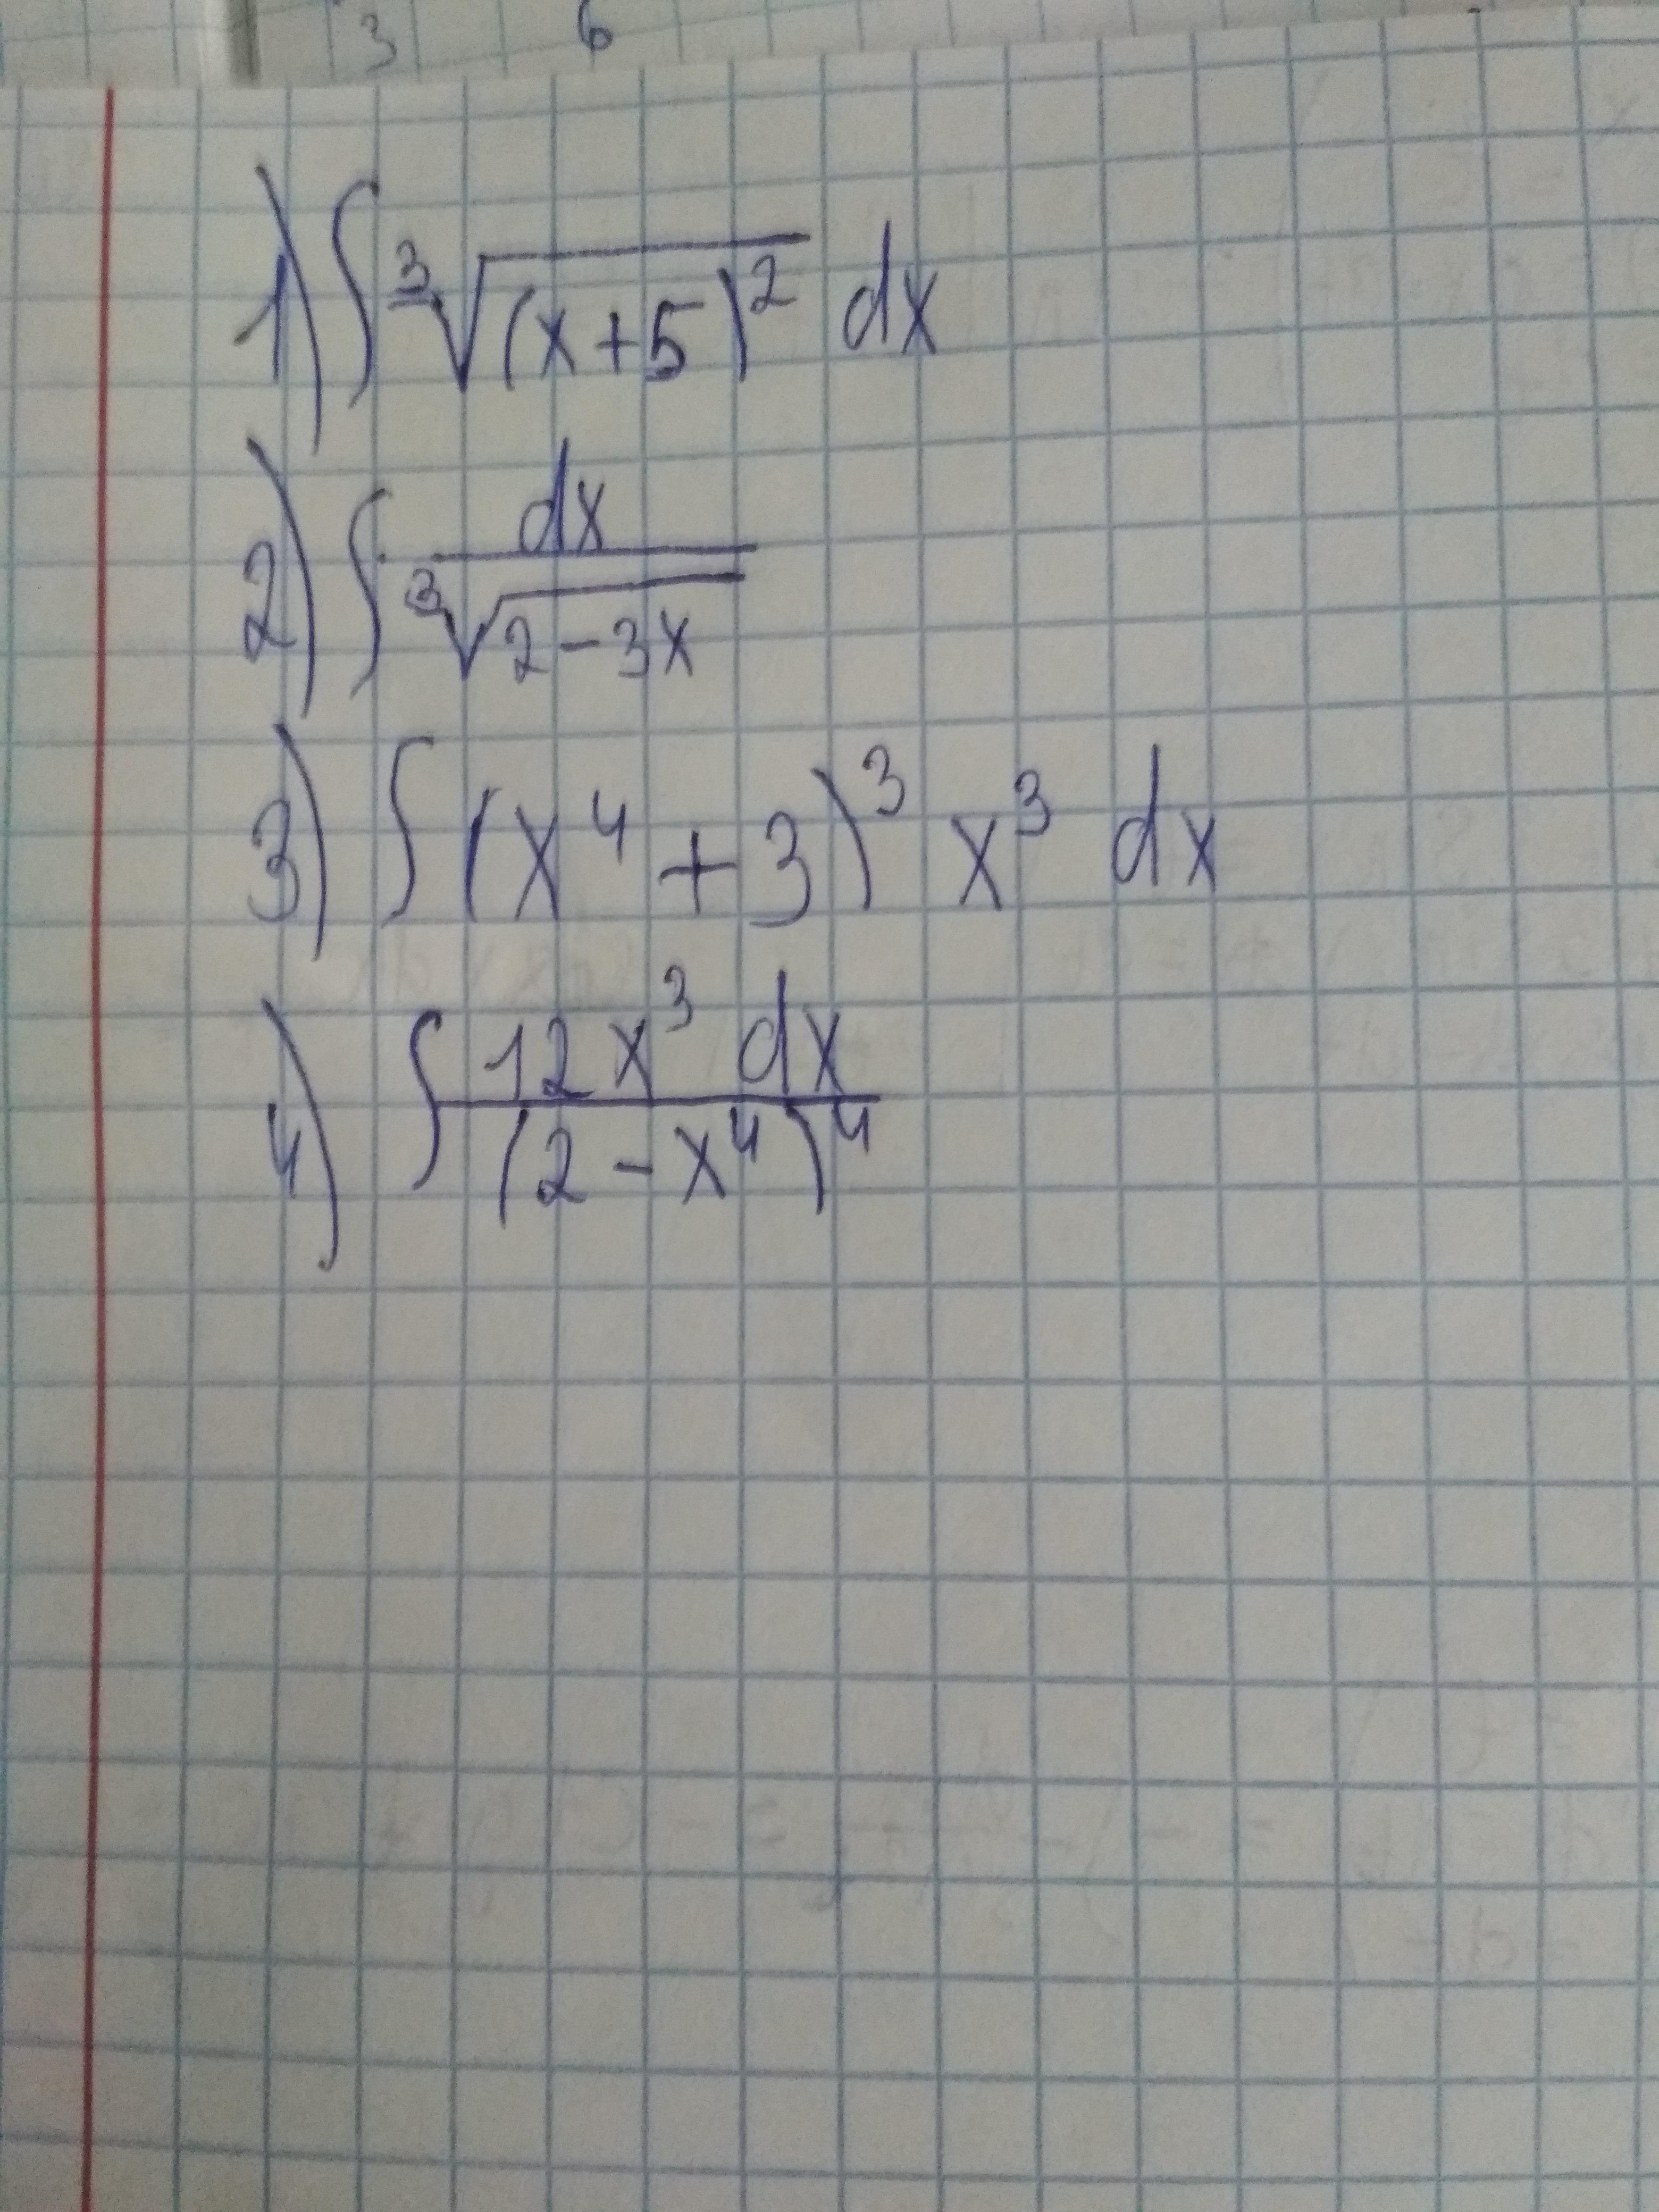 3 6
1) ∫ ∛(x+5)² dx
2) ∫ dx / ∛(2-3x)
3) ∫ (x⁴+3)³ x³ dx
4) ∫ 12x³ dx / (2-x⁴)⁴